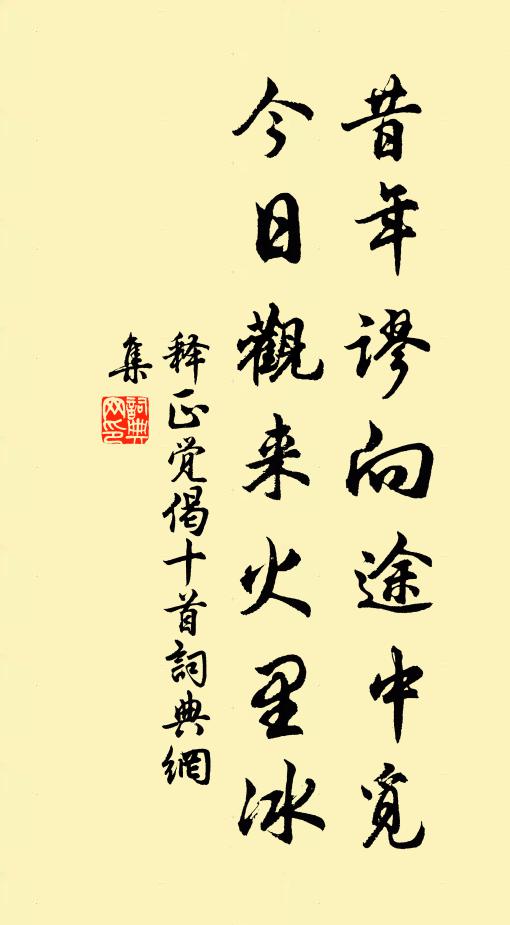 昔年谬向途中觅
今日觀来火里冰
释正觉偈十首詞典網
集
詞典
网印